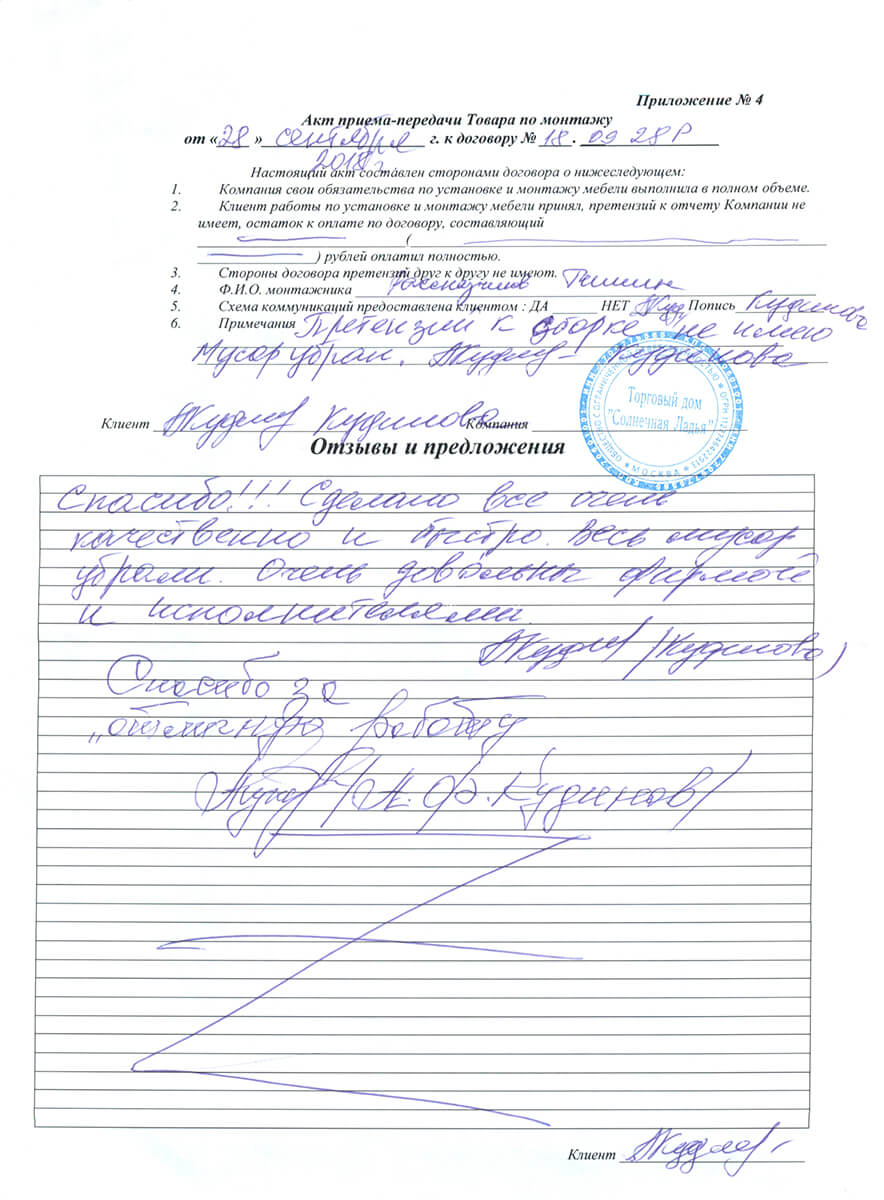 Приложение № 4
Акт приема-передачи Товара по монтажу
от «28» сентября г. к договору № 18. 09 28Р
2018 г.
Настоящий акт составлен сторонами договора о нижеследующем:
1. Компания свои обязательства по установке и монтажу мебели выполнила в полном объеме.
2. Клиент работы по установке и монтажу мебели принял, претензий к отчету Компании не
имеет, остаток к оплате по договору, составляющий
(
) рублей оплатил полностью.
3. Стороны договора претензий друг к другу не имеют.
4. Ф.И.О. монтажника
5. Схема коммуникаций предоставлена клиентом : ДА НЕТ Попись Кудинова
6. Примечания Претензии к сборке не имею
Мусор убран. Кудинова
Клиент Кудинова Компания
Торговый дом
"Солнечная Ладья"
МОСКВА
Отзывы и предложения
Спасибо!!! Сделано все очень
качественно и быстро. Весь мусор
убрали. Очень довольны фирмой
и исполнителями.
/Кудинова/
Спасибо за
"отличную работу
/А. Ф. Кудинов/
Клиент